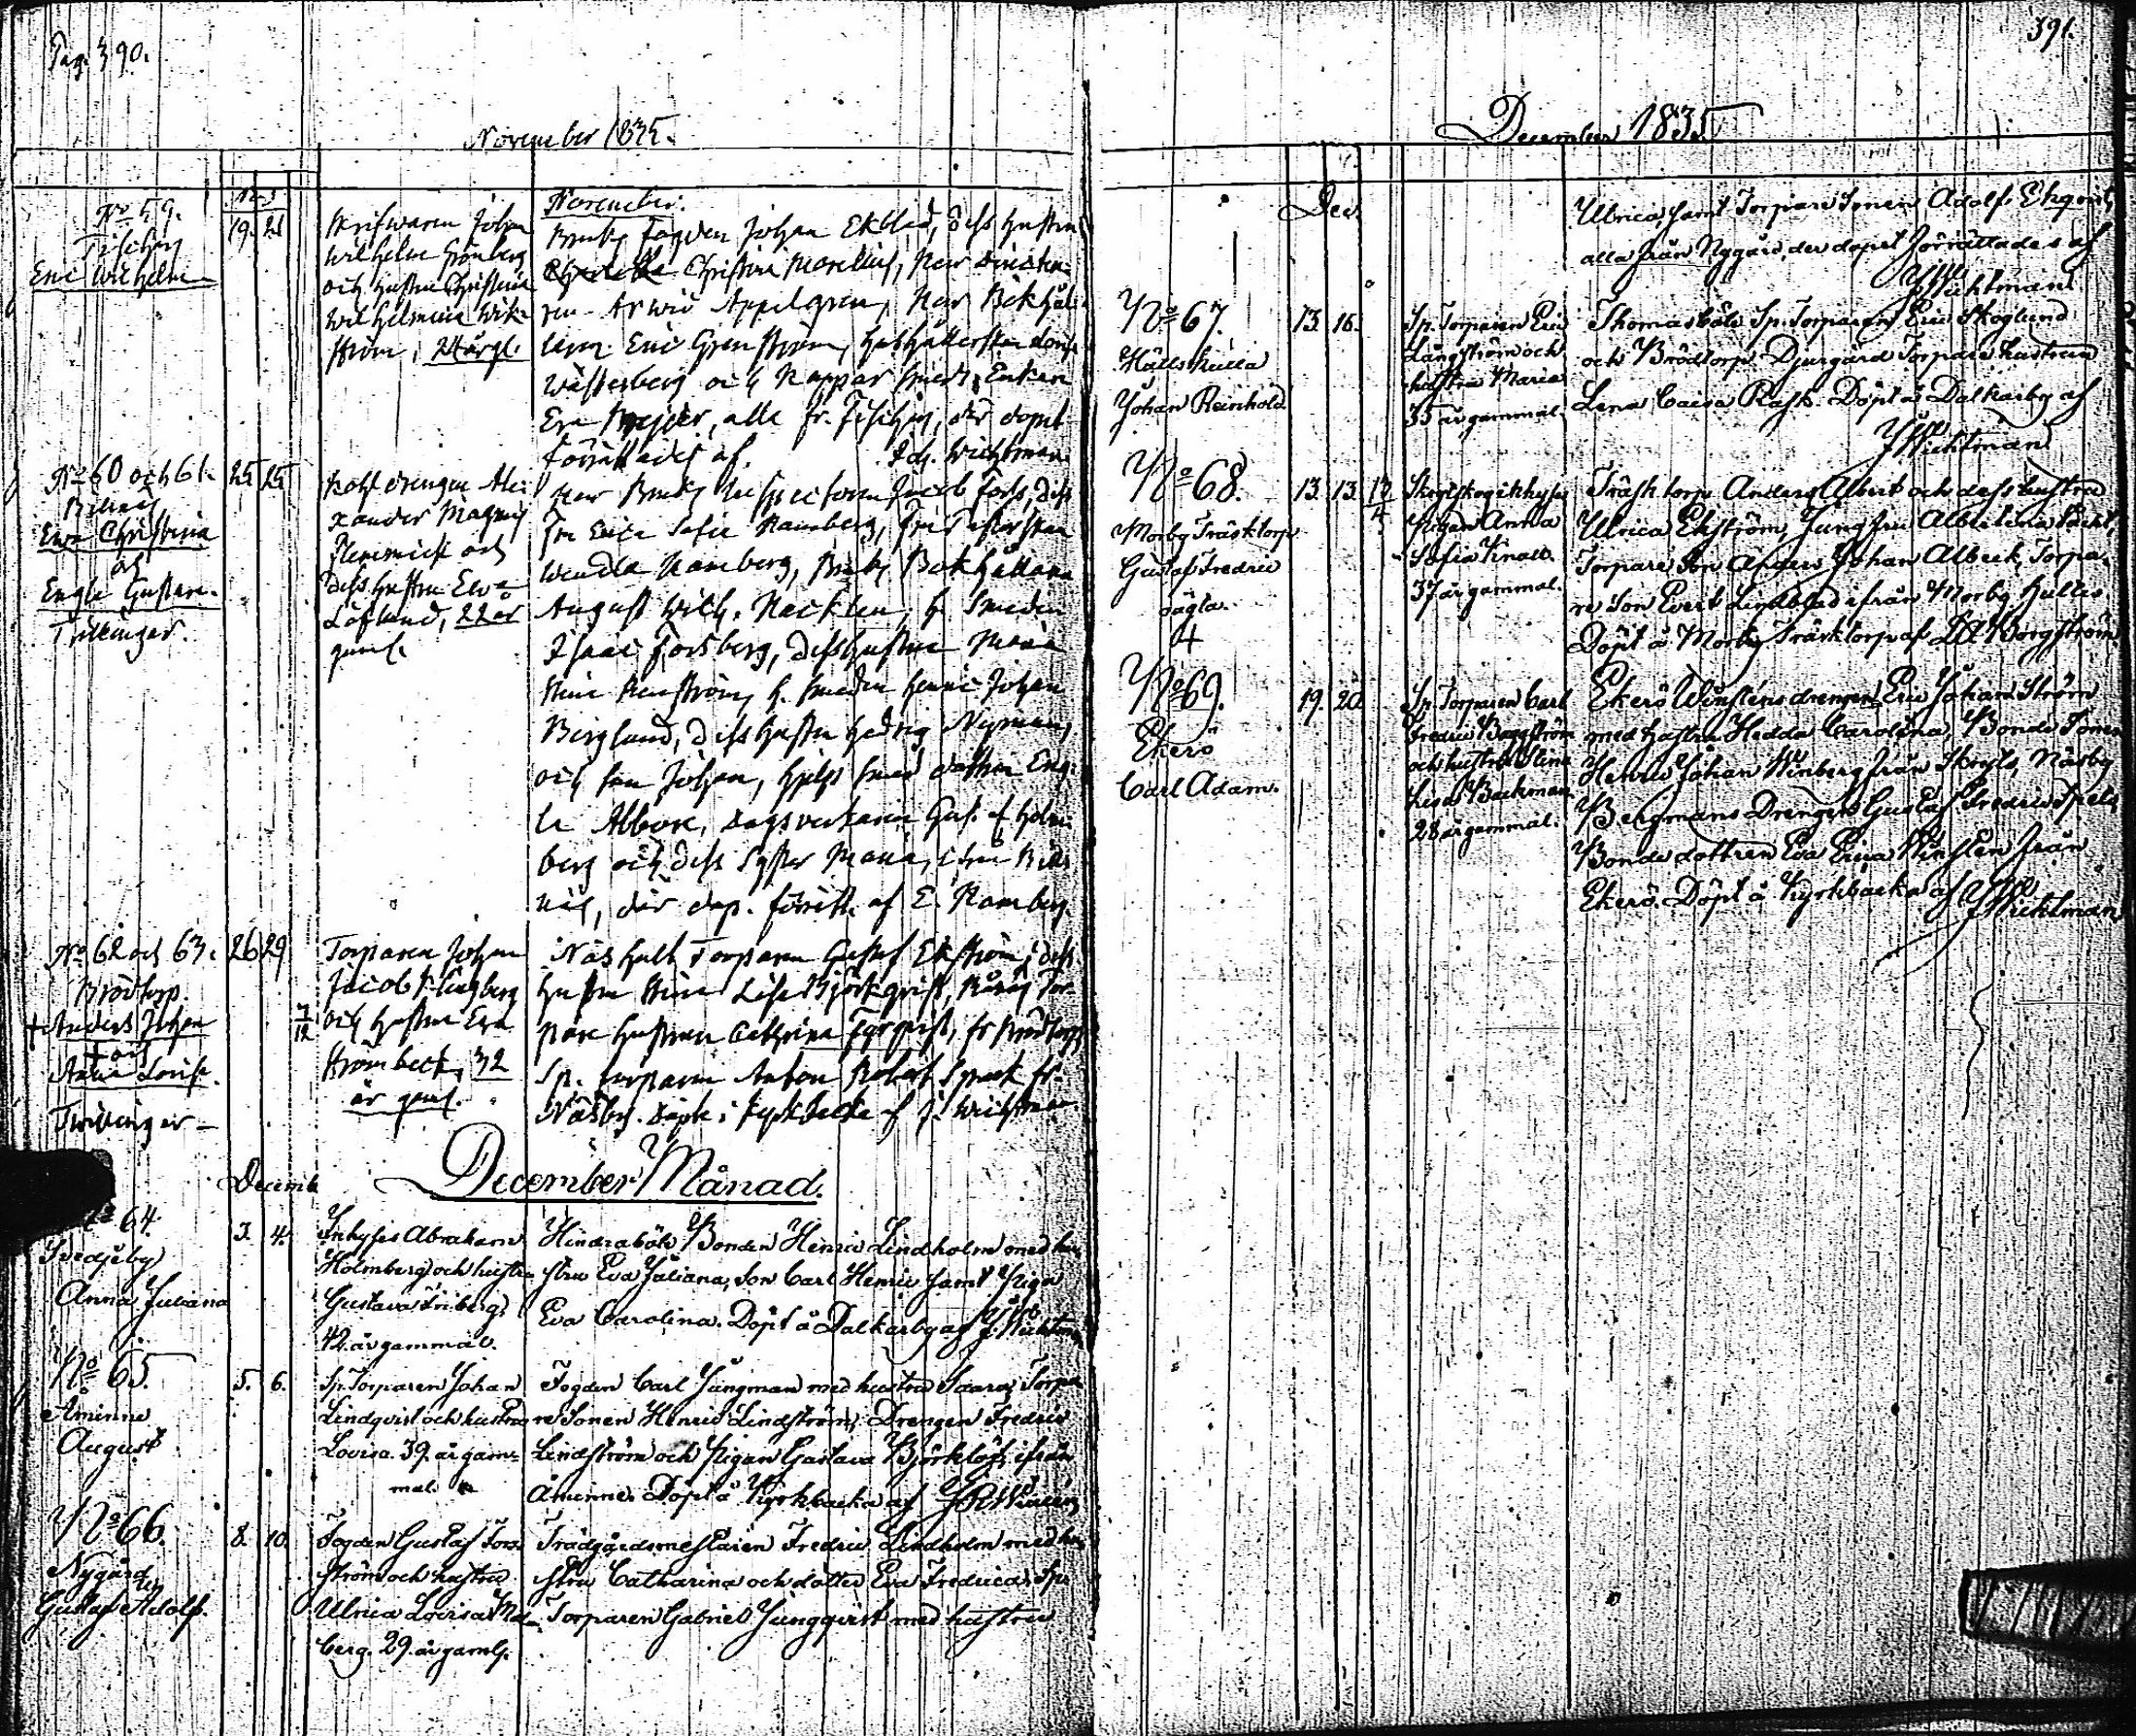 Pag. 390.
November 1835.
No 59.
Fiskars
Eric Wilhelm
19. 21
Johan
Wilhelm Grönberg
och hustru Christina
Wilhelmina Wik-
ström,
November.
Bruks Fogden Johan Ekblad, dess hustru
Christina Morelius, Herr
Arwid Appelgren, Herr Bokhål-
laren Eric Grenström, Hushållerskan
Westerberg och Kopparsmeds Enkan
Eva alla fr. Fiskars, der dopet
förrättades af. Joh. Wichtman
No 60 och 61.
Billnäs
Ewa Christina
och
Engla Gustava.
Tvillingar.
25 25
Koldrengen Ale-
xander Magnus
och
Dess hustru Eva
Löflund, 22 år
gaml.
Herr Bruks Inspectoren Jacob Fors, dess
Fru Erica Sofia Ramberg,
Wendla Ramberg, Bruks Bokhållaren
August Wilh. Smeden
Isaac Forsberg, dess hustru Maria
Stina Smeden Henric Johan
Berglund, dess hustru Hedvig Nyman,
och son Johan, hjelpsmed dottren Eng-
la Abbore, Dagsverkaren Gust. Holm-
berg och dess Syster Maria, ifrån Bill-
näs, där dop. förrätt. af E. Ramberg.
No 62 och 63.
Brödtorp.
+ Anders Johan
+ och
Anna Lovisa.
Tvillingar -
26 29
7/12
Torparen Johan
Jacob Klingberg
och hustru Eva
Strömbeck, 32
år gaml.
Näs hult Torparen Gustaf Ekström, dess
hustru Stina Lisa Björkqvist, Tor-
pare hustrun Cathrina fr Brödtorp
Sp. torparen Anton Robert Spark fr.
Näsby. Döpte i Kyrkbacka af J. Wichtman
Decemb
December Månad.
No 64.
Svedjeby
Anna Juliana
3. 4.
Inhyses Abraham
Holmberg och hustru
Gustava Friberg,
42. år gammal.
Hindraböle Bonden Henric Lindholm med hu-
stru Eva Juliana, Son Carl Henric samt Pigan
Eva Carolina. Döpt å Dalkarby af J. Wichtman
No 65.
Åminne
August
5. 6.
Sp. Torparen Johan
Lindqvist och hustru
Lovisa. 39. år gam-
mal.
Fogden Carl Jungman med hustru Saara, Torpa-
re Sonen Henric Lindström, Drengen Fredric
Lindström och Pigan Gustava Björklöf, ifrån
Åminne. Döpt å Kyrkbacka af
No 66.
Nygård
Gustaf Adolf.
8. 10.
Fogden Gustaf Fors-
ström och hustru
Ulrica Lovisa Mal-
berg. 29. år gaml.
Trädgårdsmestaren Fredric Lindholm med hu-
stru Catharina och dotter Eva Fredrica, Sp.
Torparen Gabriel Ljungqvist med hustru
391.
December 1835
Dec.
Ulrica, samt Torpare Sonen Adolf Ekqvist,
alla från Nygård, der dopet förrättades af
J. Wichtman
No 67.
Hällskulla
Johan Reinhold
13. 16.
Sp. Torparen Eric
Långström och
hustru Maria
35 år gammal.
Thomasböle Sp. Torparen Eric Skoglund
och Brödtorps Djurgård Torpare hustrun
Lena Caisa Rask. Döpt å Dalkarby af
J. Wichtman
No 68.
Morby Träsktorp
Gustaf Fredric
oägta.
+
13. 13.
Pigan Anna
Sofia
37 år gammal.
Träsktorp Anders Albert och dess hustru
Ulrica Ekström, Jungfru Albertina
Torpare Son Anders Johan Albeck, Torpa-
re Son Evert Lindblad ifrån Morby
Döpt å Morby Träsktorp af Borgström
No 69.
Ekerö
Carl Adam.
19. 20.
Sp. Torparen Carl
Fredric Borgström
och hustru Stina
Lisa Backman
28 år gammal.
Ekerö Winstens drengen Eric Johan Ström
med hustru Hedda Carolina, Bonde Sonen
Henric Johan Winberg från Skogls, Näsby
Bergmans Drengen Gustaf Fredric
Bonde dottren Eva Erica Winsten från
Ekerö. Döpt å Kyrkbacka af J Wichtman